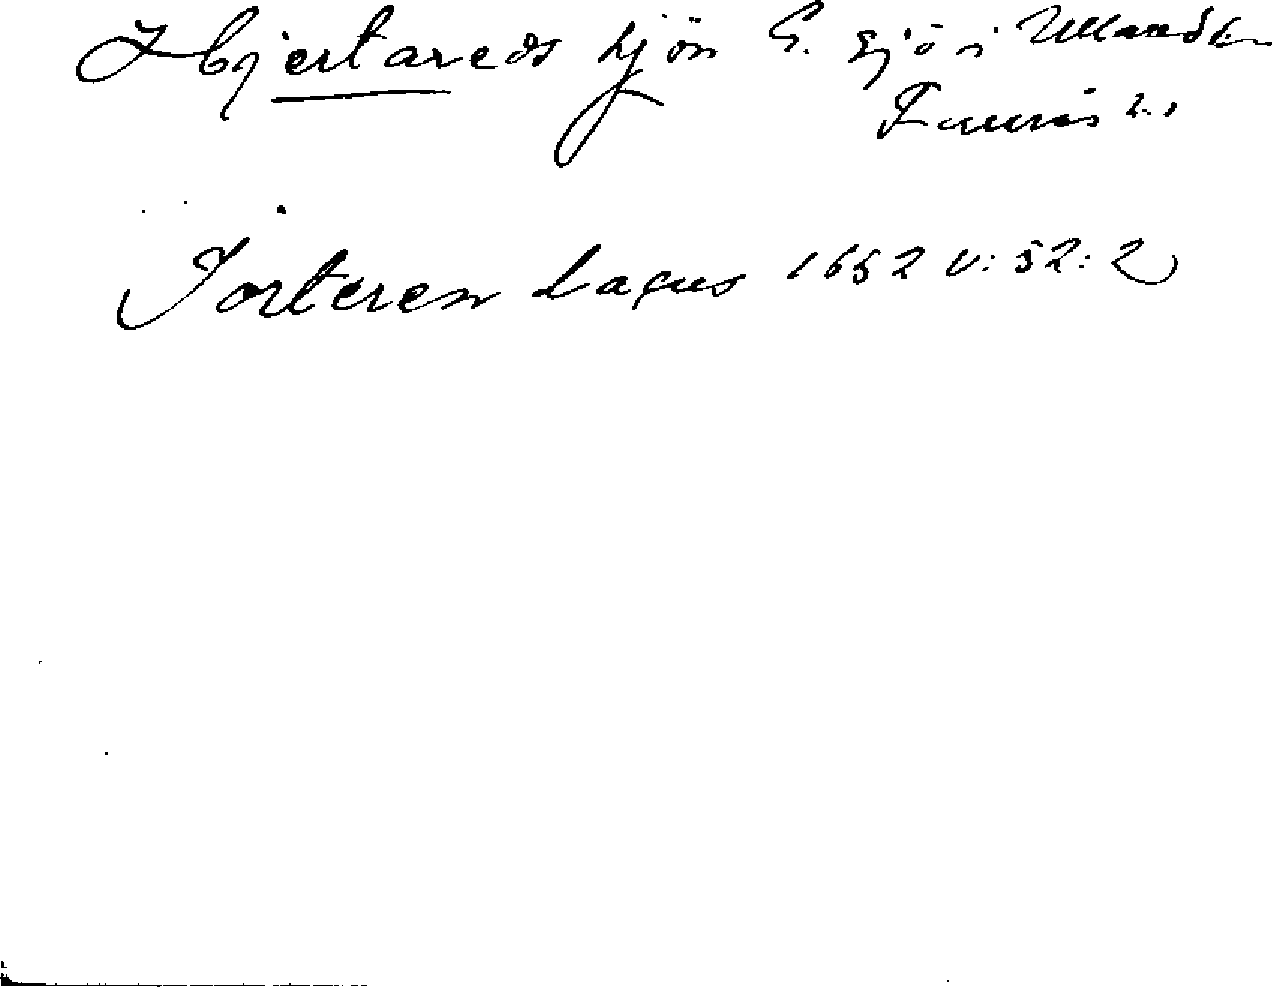 Hjertareds sjön G. sjö i Ullared sn
Faurås h.
Jorteren Lacus 1652 V: 52: 2